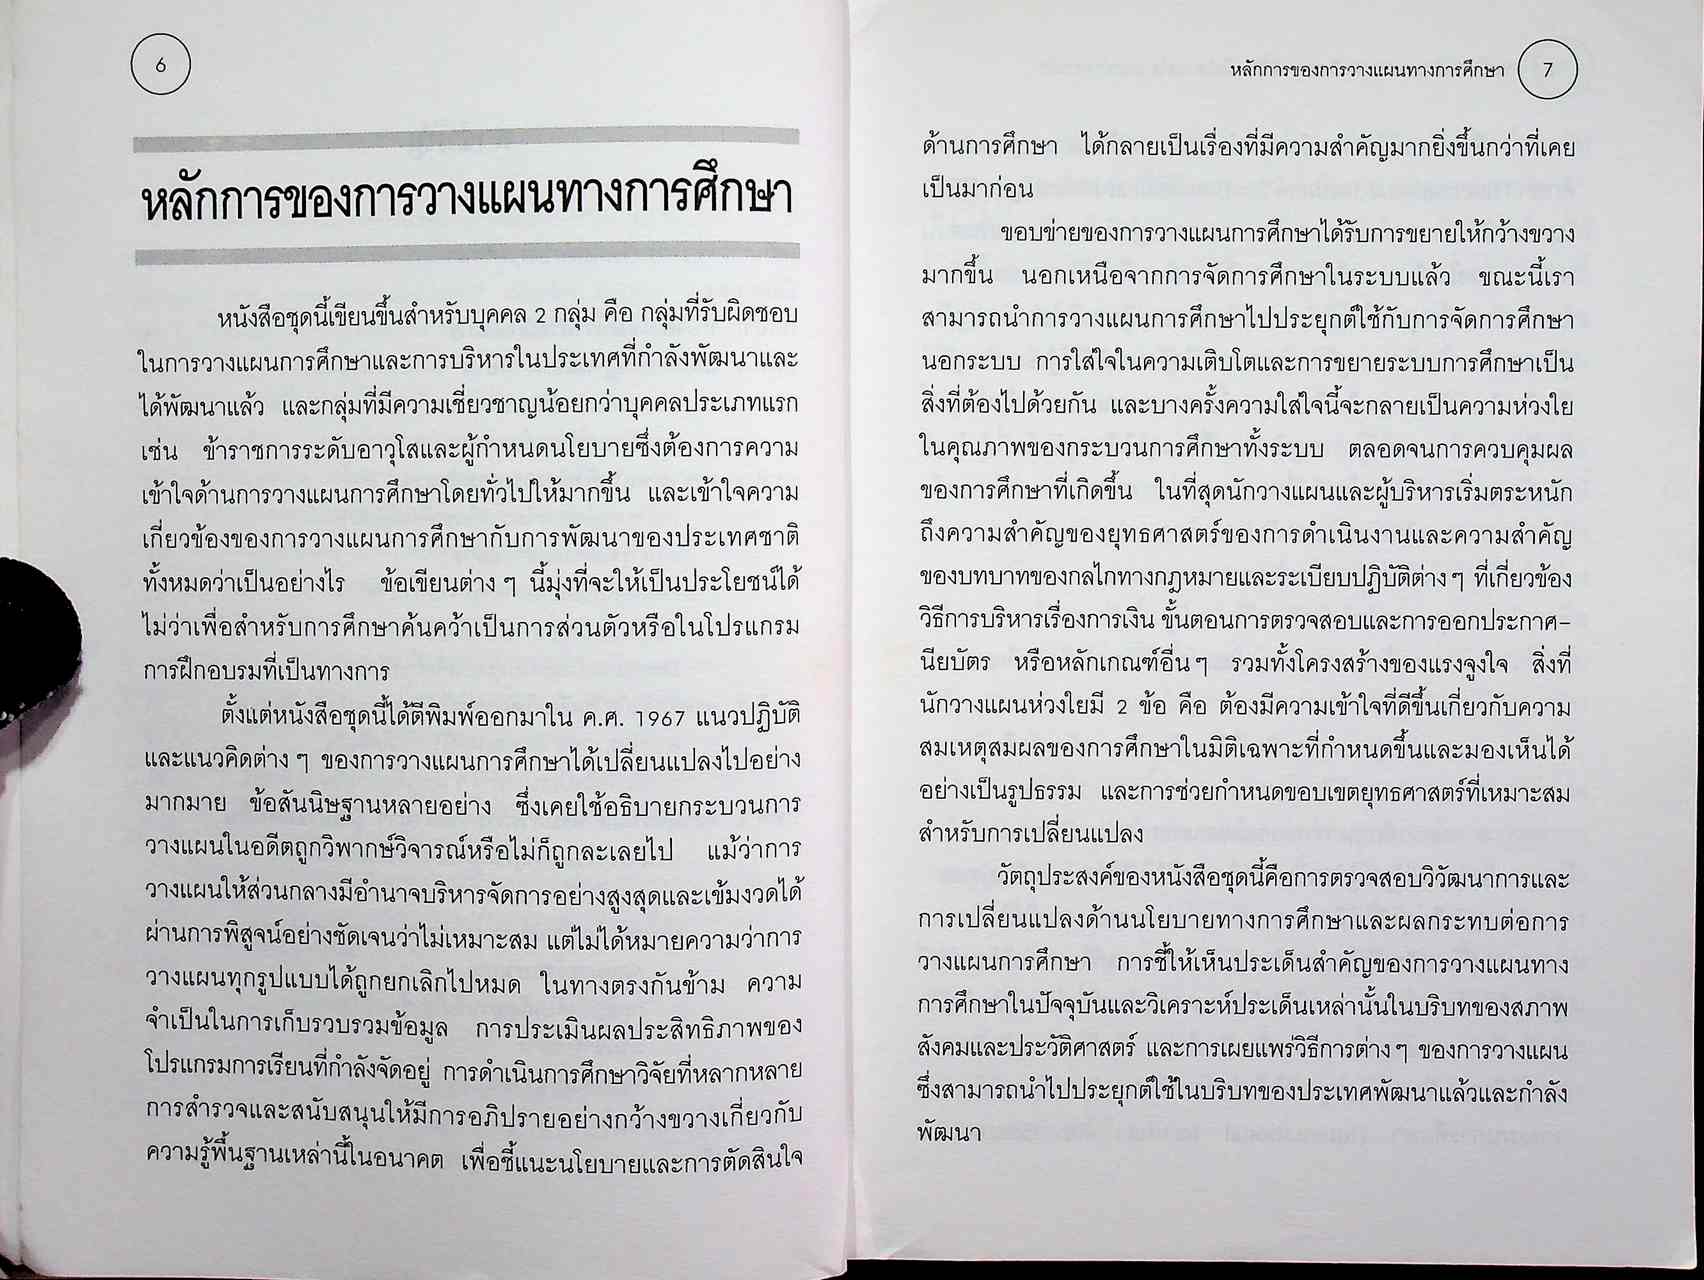 6
หลักการของการวางแผนทางการศึกษา
หนังสือชุดนี้เขียนขึ้นสำหรับบุคคล 2 กลุ่ม คือ กลุ่มที่รับผิดชอบ
ในการวางแผนการศึกษาและการบริหารในประเทศที่กำลังพัฒนาและ
ได้พัฒนาแล้ว และกลุ่มที่มีความเชี่ยวชาญน้อยกว่าบุคคลประเภทแรก
เช่น ข้าราชการระดับอาวุโสและผู้กำหนดนโยบายซึ่งต้องการความ
เข้าใจด้านการวางแผนการศึกษาโดยทั่วไปให้มากขึ้น และเข้าใจความ
เกี่ยวข้องของการวางแผนการศึกษากับการพัฒนาของประเทศชาติ
ทั้งหมดว่าเป็นอย่างไร ข้อเขียนต่าง ๆ นี้มุ่งที่จะให้เป็นประโยชน์ได้
ไม่ว่าเพื่อสำหรับการศึกษาค้นคว้าเป็นการส่วนตัวหรือในโปรแกรม
การฝึกอบรมที่เป็นทางการ
ตั้งแต่หนังสือชุดนี้ได้ตีพิมพ์ออกมาใน ค.ศ. 1967 แนวปฏิบัติ
และแนวคิดต่าง ๆ ของการวางแผนการศึกษาได้เปลี่ยนแปลงไปอย่าง
มากมาย ข้อสันนิษฐานหลายอย่าง ซึ่งเคยใช้อธิบายกระบวนการ
วางแผนในอดีตถูกวิพากษ์วิจารณ์หรือไม่ก็ถูกละเลยไป แม้ว่าการ
วางแผนให้ส่วนกลางมีอำนาจบริหารจัดการอย่างสูงสุดและเข้มงวดได้
ผ่านการพิสูจน์อย่างชัดเจนว่าไม่เหมาะสม แต่ไม่ได้หมายความว่าการ
วางแผนทุกรูปแบบได้ถูกยกเลิกไปหมด ในทางตรงกันข้าม ความ
จำเป็นในการเก็บรวบรวมข้อมูล การประเมินผลประสิทธิภาพของ
โปรแกรมการเรียนที่กำลังจัดอยู่ การดำเนินการศึกษาวิจัยที่หลากหลาย
การสำรวจและสนับสนุนให้มีการอภิปรายอย่างกว้างขวางเกี่ยวกับ
ความรู้พื้นฐานเหล่านี้ในอนาคต เพื่อชี้แนะนโยบายและการตัดสินใจ
หลักการของการวางแผนทางการศึกษา 7
ด้านการศึกษา ได้กลายเป็นเรื่องที่มีความสำคัญมากยิ่งขึ้นกว่าที่เคย
เป็นมาก่อน
ขอบข่ายของการวางแผนการศึกษาได้รับการขยายให้กว้างขวาง
มากขึ้น นอกเหนือจากการจัดการศึกษาในระบบแล้ว ขณะนี้เรา
สามารถนำการวางแผนการศึกษาไปประยุกต์ใช้กับการจัดการศึกษา
นอกระบบ การใส่ใจในความเติบโตและการขยายระบบการศึกษาเป็น
สิ่งที่ต้องไปด้วยกัน และบางครั้งความใส่ใจนี้จะกลายเป็นความห่วงใย
ในคุณภาพของกระบวนการศึกษาทั้งระบบ ตลอดจนการควบคุมผล
ของการศึกษาที่เกิดขึ้น ในที่สุดนักวางแผนและผู้บริหารเริ่มตระหนัก
ถึงความสำคัญของยุทธศาสตร์ของการดำเนินงานและความสำคัญ
ของบทบาทของกลไกทางกฎหมายและระเบียบปฏิบัติต่าง ๆ ที่เกี่ยวข้อง
วิธีการบริหารเรื่องการเงิน ขั้นตอนการตรวจสอบและการออกประกาศ-
นียบัตร หรือหลักเกณฑ์อื่น ๆ รวมทั้งโครงสร้างของแรงจูงใจ สิ่งที่
นักวางแผนห่วงใยมี 2 ข้อ คือ ต้องมีความเข้าใจที่ดีขึ้นเกี่ยวกับความ
สมเหตุสมผลของการศึกษาในมิติเฉพาะที่กำหนดขึ้นและมองเห็นได้
อย่างเป็นรูปธรรม และการช่วยกำหนดขอบเขตยุทธศาสตร์ที่เหมาะสม
สำหรับการเปลี่ยนแปลง
วัตถุประสงค์ของหนังสือชุดนี้คือการตรวจสอบวิวัฒนาการและ
การเปลี่ยนแปลงด้านนโยบายทางการศึกษาและผลกระทบต่อการ
วางแผนการศึกษา การชี้ให้เห็นประเด็นสำคัญของการวางแผนทาง
การศึกษาในปัจจุบันและวิเคราะห์ประเด็นเหล่านั้นในบริบทของสภาพ
สังคมและประวัติศาสตร์ และการเผยแพร่วิธีการต่าง ๆ ของการวางแผน
ซึ่งสามารถนำไปประยุกต์ใช้ในบริบทของประเทศพัฒนาแล้วและกำลัง
พัฒนา